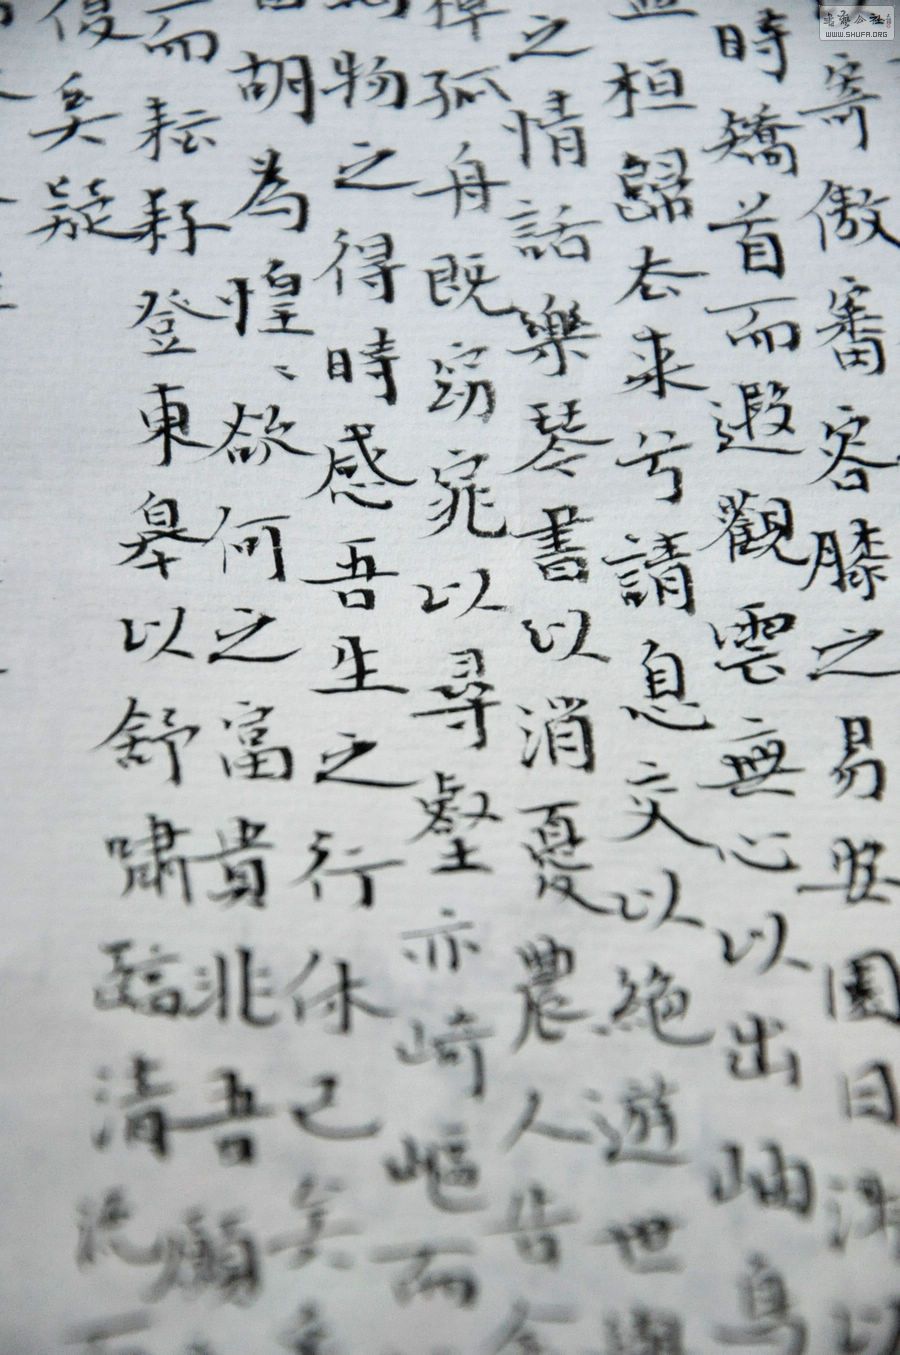 寄傲審容膝之易安園日涉以
時矯首而遐觀雲無心以出岫鳥
桓歸去来兮請息交以絶遊世與
之情話樂琴書以消憂農人告余
孤舟既窈窕以尋壑亦崎嶇而
物之得時感吾生之行休已矣
胡為惶〻欲何之富貴非吾願
而耘耔登東皋以舒嘯臨清流
復奚疑
書法公社
WWW.SHUFA.ORG